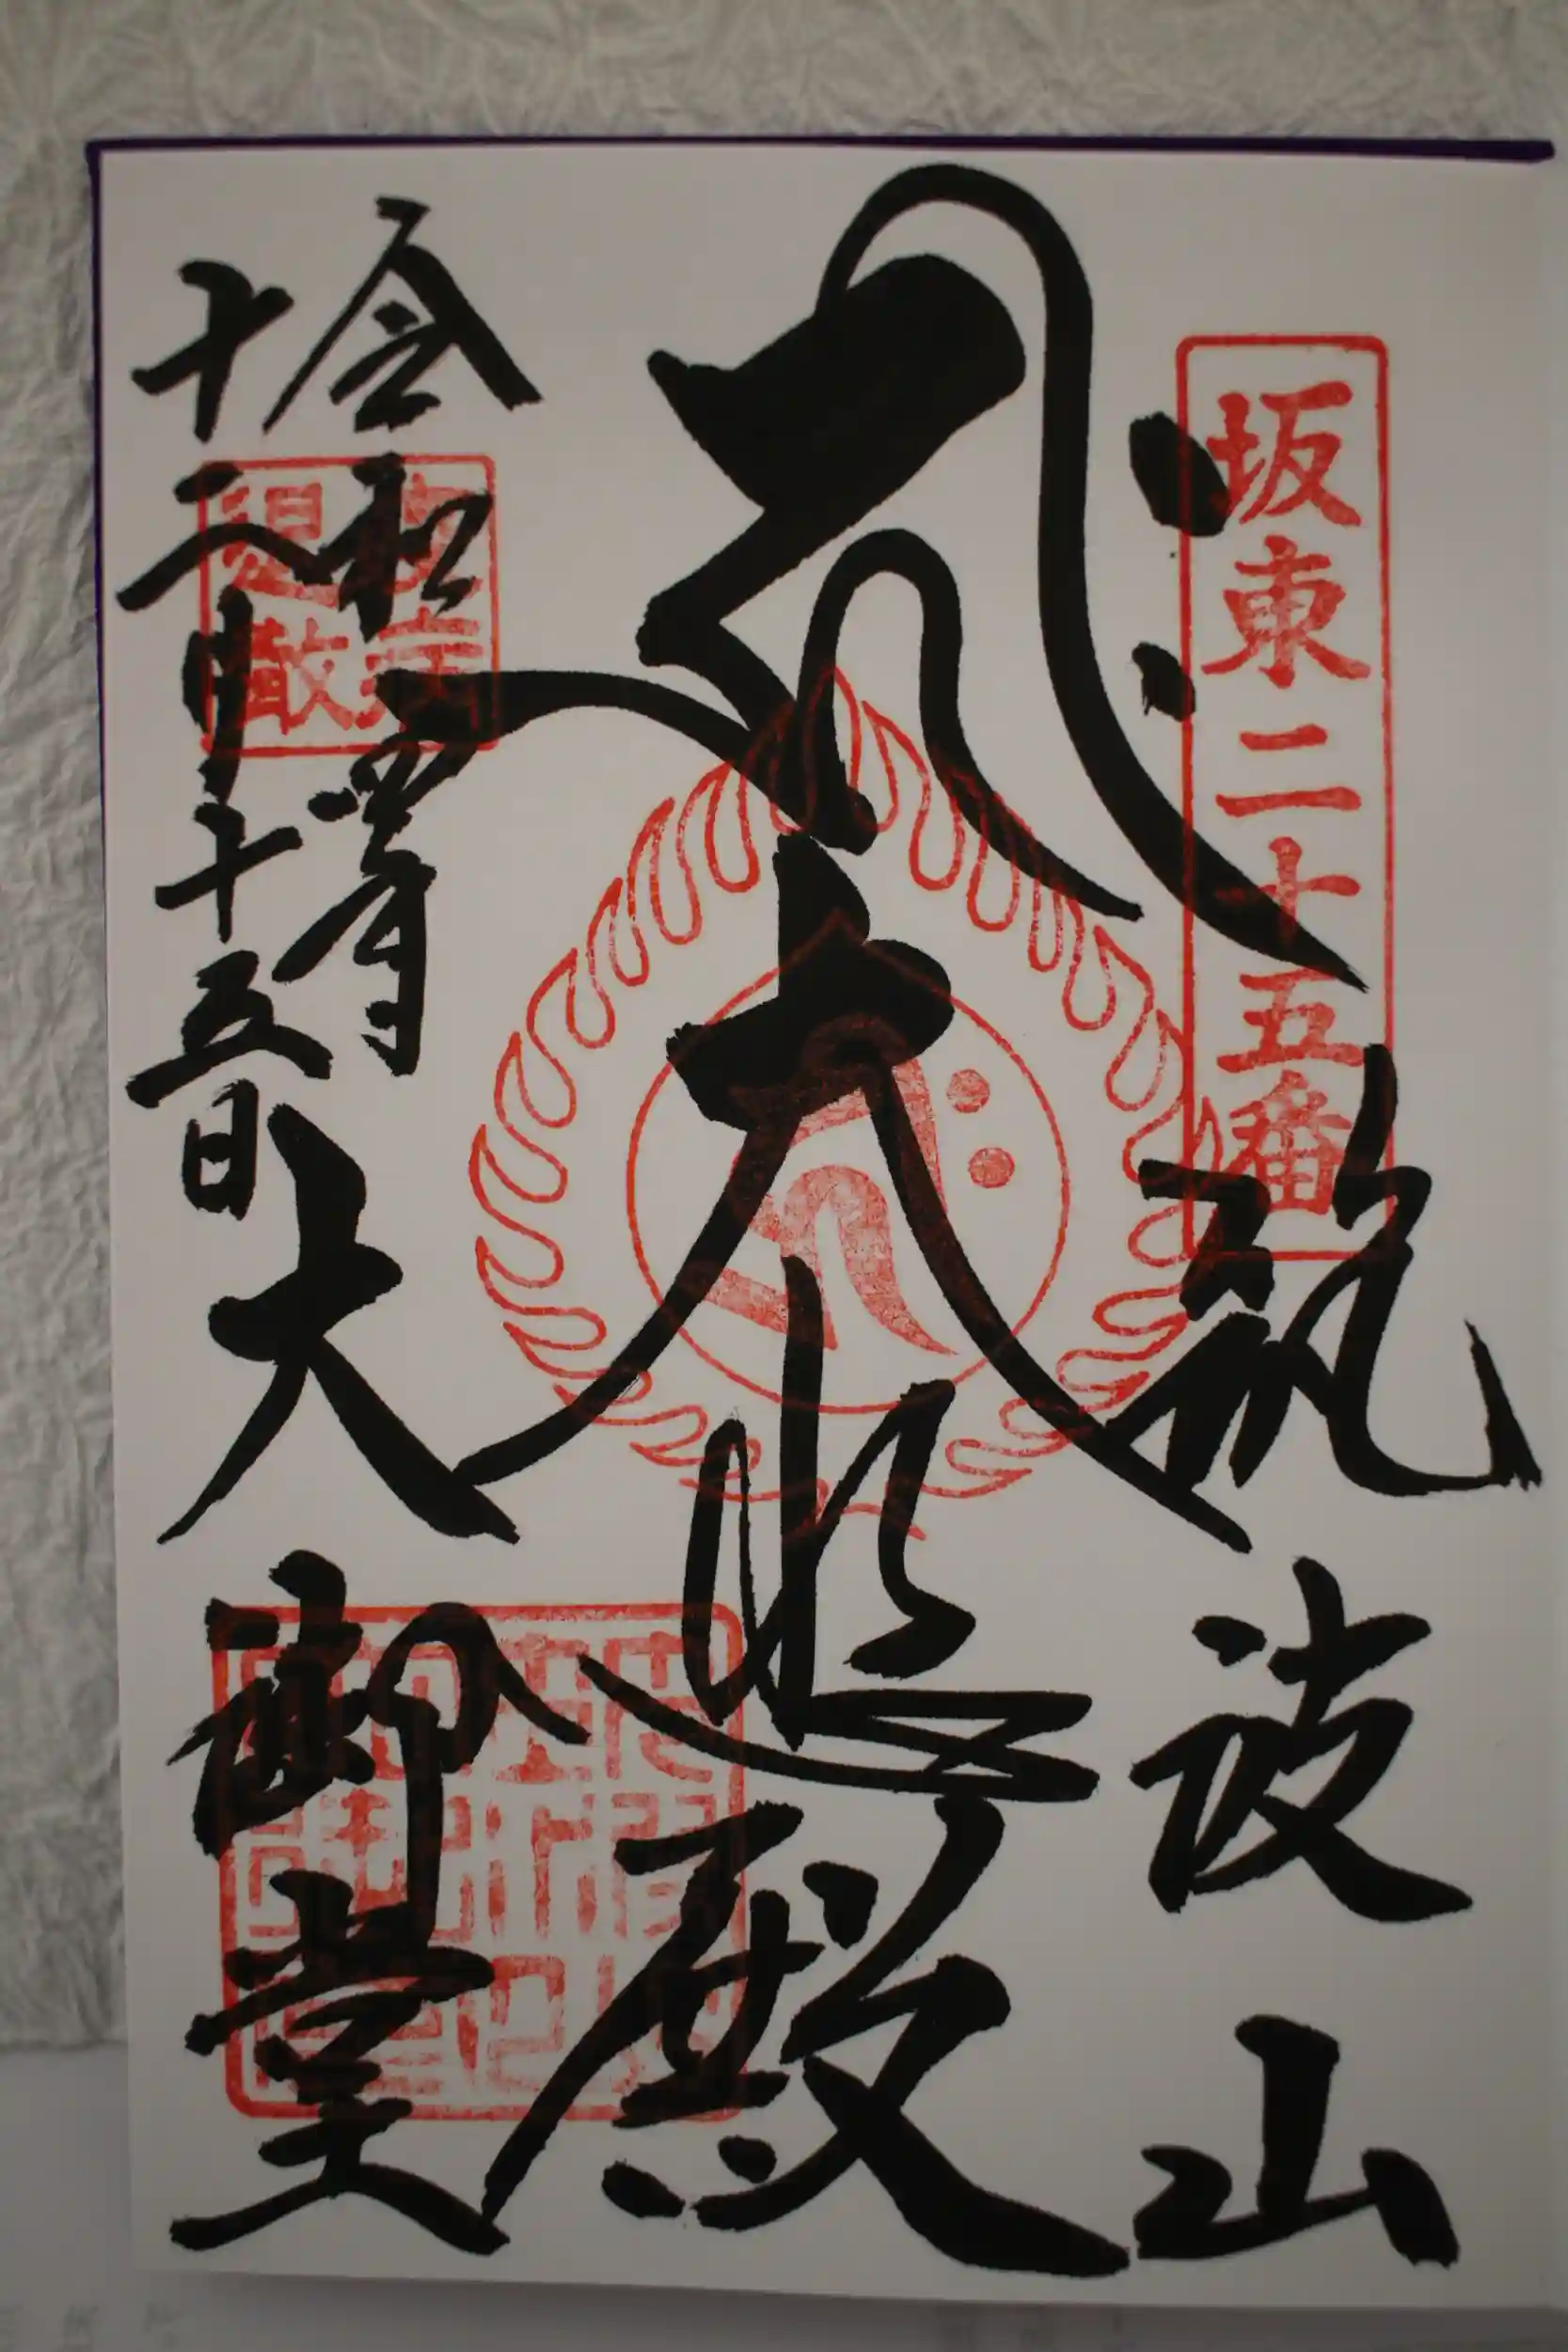 坂東二十五番
筑波山
大悲殿
令和四年
十二月十五日
大御堂